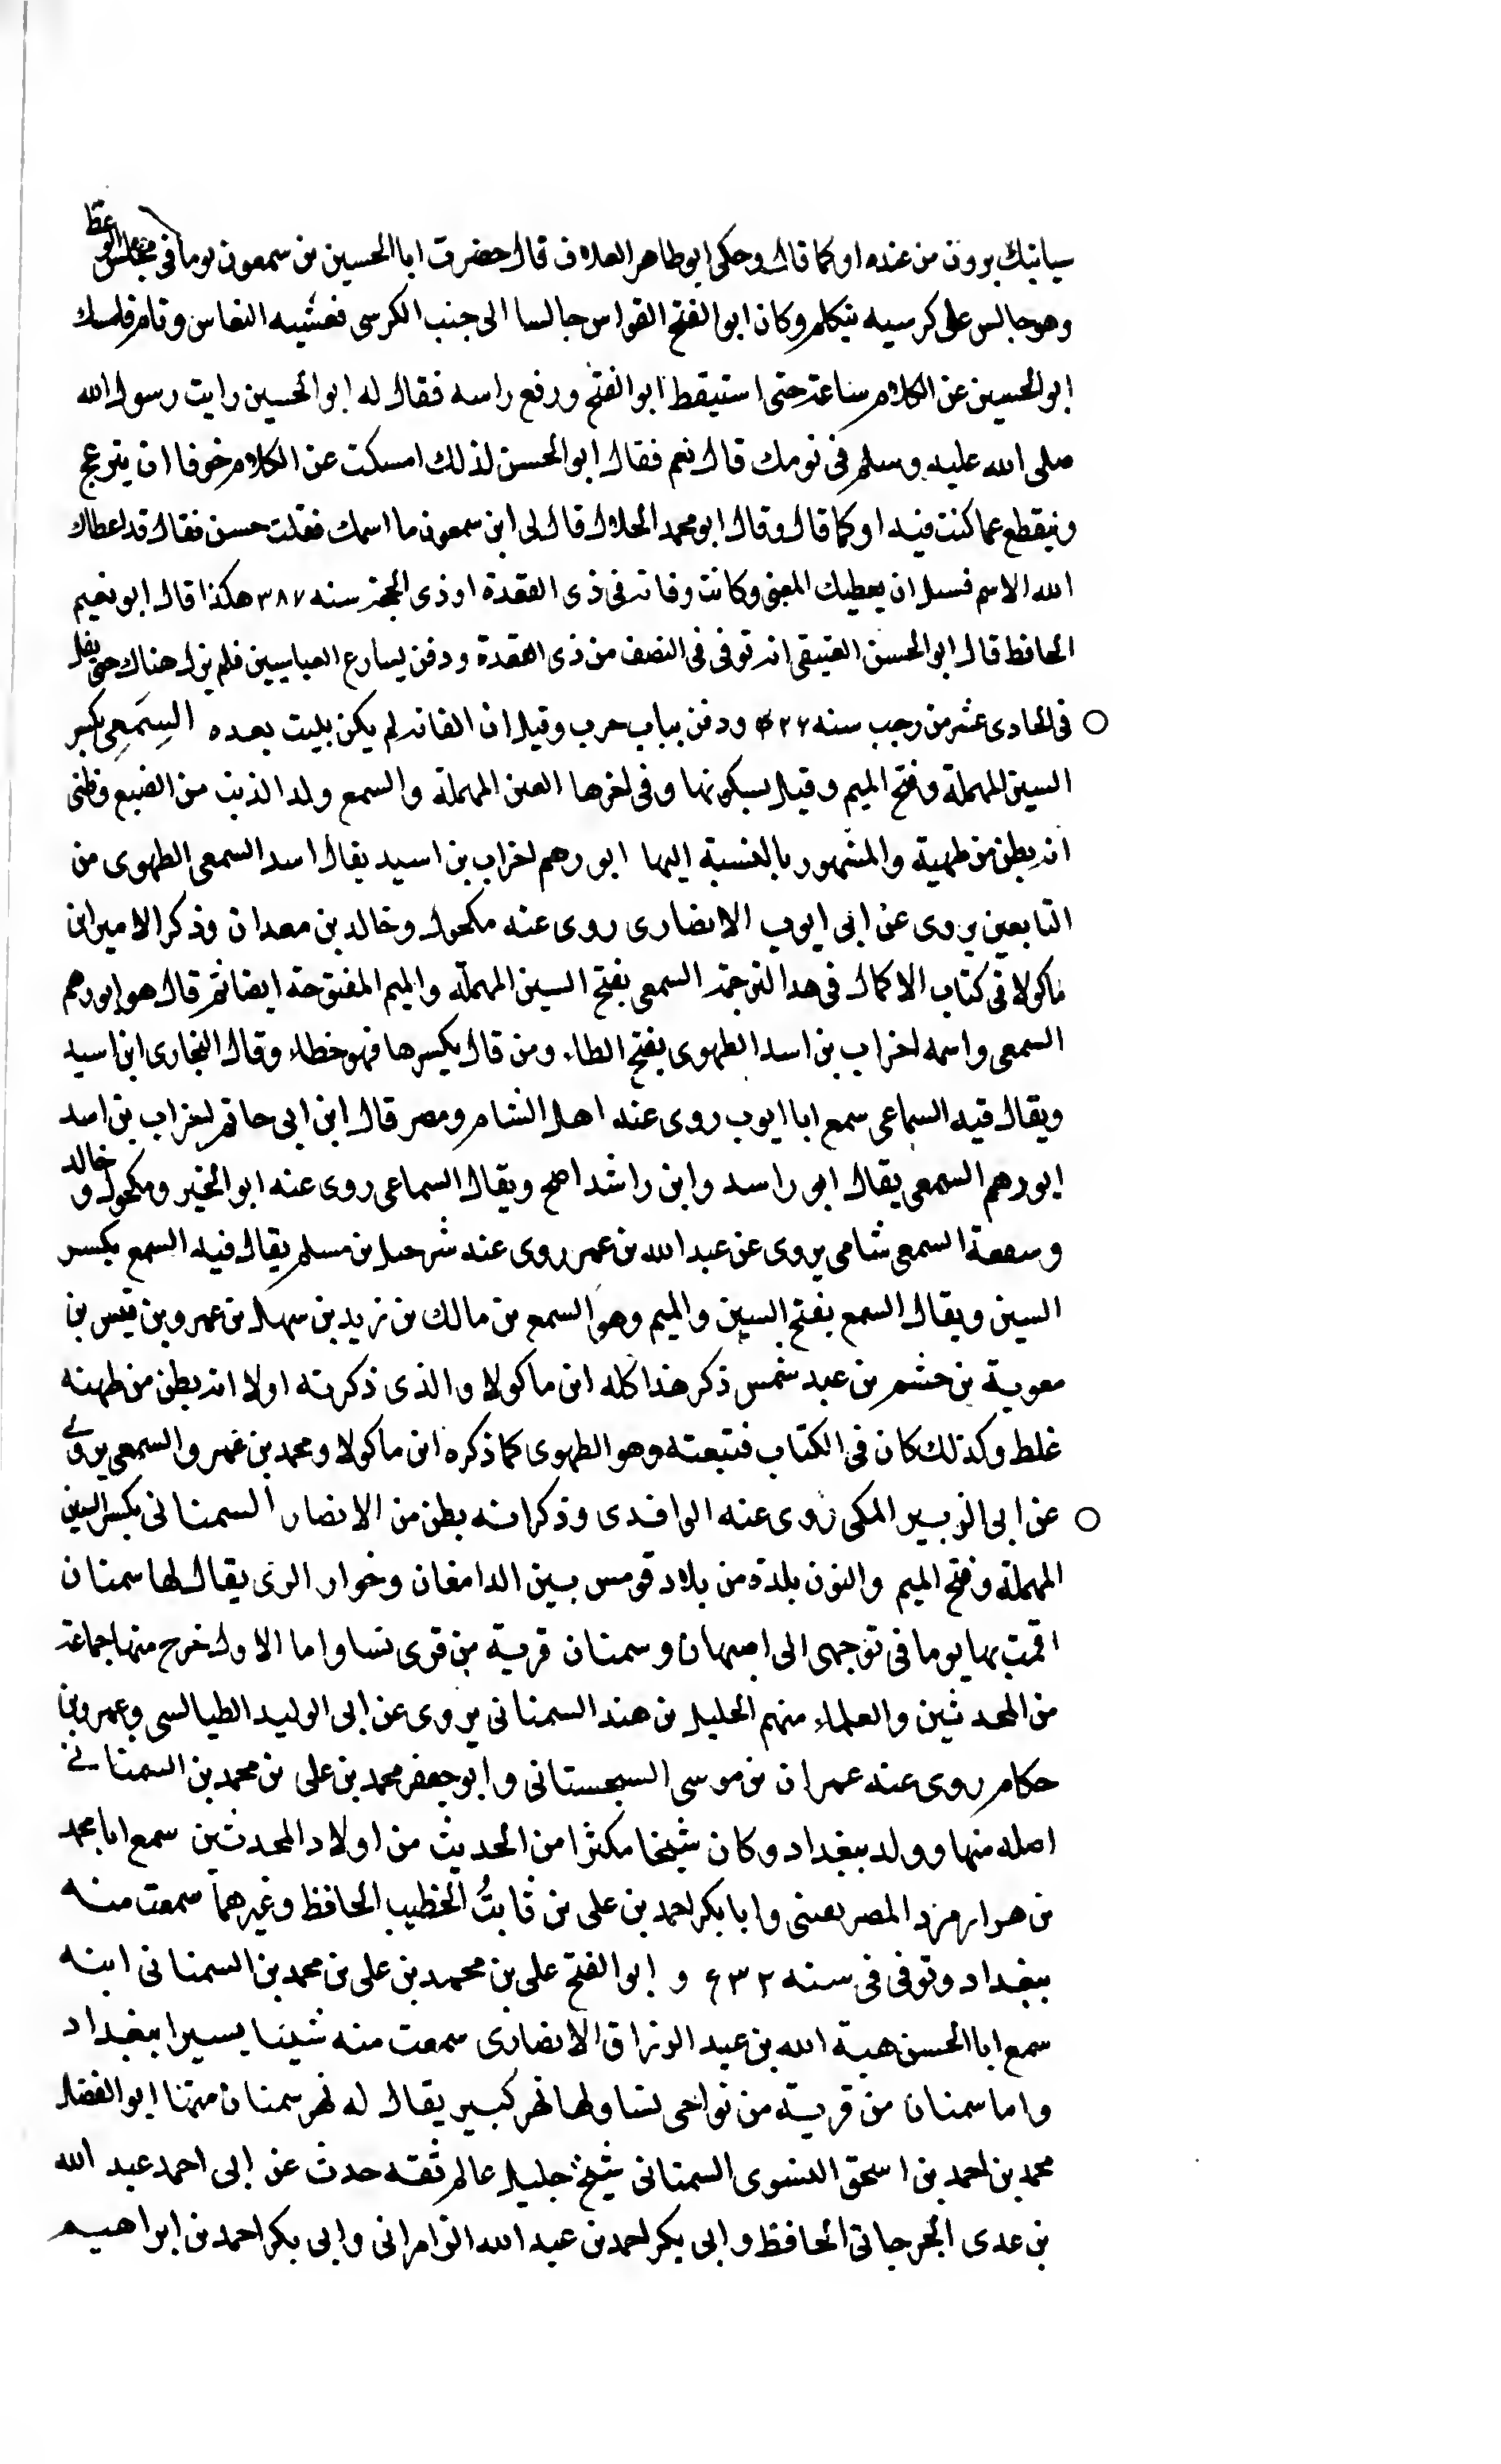 سياتيك برون من عنده او كما قال وحكى ابو طاهر العلاف قال حضرت ابا الحسين بن سمعون يوما في مجلس الوعظ
وهو جالس على كرسيه يتكلم وكان ابو الفتح القواس جالسا الى جنب الكرسي فغشيه النعاس ونام فامسك
ابو الحسين عن الكلام ساعة حتى استيقظ ابو الفتح ورفع راسه فقال له ابو الحسين رايت رسول الله
صلى الله عليه وسلم في نومك قال نعم فقال ابو الحسن لذلك امسكت عن الكلام خوفا ان ينزعج
وينقطع عما كنت فيه او كما قال وقال ابو محمد الخلال قال لي ابن سمعون ما اسمك فقلت حسن فقال قد اعطاك
الله الاسم فسل ان يعطيك المعنى وكانت وفاته في ذي القعدة او ذي الحجة سنه ٣٨٧ هكذا قال ابو نعيم
الحافظ قال ابو الحسن العتيقي انه توفي في النصف من ذي القعدة ودفن بشارع العباسيين فلم يزل هناك حتى نقل
في الحادي عشر من رجب سنه ودفن بباب حرب وقيل ان اكفانه لم يكن بليت بعده السِمَعِي بكسر
السين المهملة وفتح الميم وقيل بسكونها وفي اخرها العين المهملة والسمع ولد الذئب من الضبع وظني
انه بطن من طهية والمشهور بالنسبة اليها ابو رهم احزاب بن اسيد يقال اسد السمعي الطهوي من
التابعين يروي عن ابي ايوب الانصاري روى عنه مكحول وخالد بن معدان وذكر الامير ابن
ماكولا في كتاب الاكمال في هذا الترجمة السمعي بفتح السين المهملة والميم المفتوحة ايضا ثم قال هو ابو رهم
السمعي واسمه احزاب بن اسد الطهوي بفتح الطاء ومن قال بكسرها فهو خطاء وقال البخاري ابن اسيد
ويقال فيه السماعي سمع ابا ايوب روى عنه اهل الشام ومصر قال ابن ابي حاتم احزاب بن اسد
ابو رهم السمعي يقال ابو راسد وابن راشد اصح ويقال السماعي روى عنه ابو الخير ومكحول وخالد
و السمعي شامي يروي عن عبد الله بن عمر روى عنه شرحبيل بن مسلم يقال فيه السمع بكسر
السين ويقال السمع بفتح السين والميم وهو السمع بن مالك بن زيد بن سهل بن عمرو بن قيس بن
معوية بن جشم بن عبد شمس ذكر هذا كله ابن ماكولا والذي ذكرته اولا انه بطن من طهنه
غلط وكذلك كان في الكتاب فتبعته وهو الطهوي كما ذكره ابن ماكولا ومحمد بن عمرو السمعي يروي
عن ابي الزبير المكي روى عنه الواقدي وذكر انه بطن من الانصار السمناني بكسر السين
المهملة وفتح الميم والنون بلدة من بلاد قومس بين الدامغان وخوار الري يقال لها سمنان
اقمت بها يوما في توجهي الى اصبهان وسمنان قرية من قرى نسا واما الاول خرج منها جماعة
من المحدثين والعلماء منهم الخليل بن هند السمناني يروي عن ابي الوليد الطيالسي وعمرو بن
حكام روى عنه عمران بن موسى السجستاني وابو جعفر محمد بن علي بن محمد بن السمناني
اصله منها وولد ببغداد وكان شيخا مكثرا من الحديث من اولاد المحدثين سمع ابا محمد
بن هزارمرد الصريفيني وابا بكر احمد بن علي بن ثابت الخطيب الحافظ وغيرهما سمعت منه
ببغداد وتوفي في سنه و ابو الفتح علي بن محمد بن علي بن محمد بن السمناني ابنه
سمع ابا الحسن هبة الله بن عبد الرزاق الانصاري سمعت منه شيئا يسيرا ببغداد
واما سمنان من قرية من نواحي نسا ولها نهر كبير يقال له نهر سمنان منها ابو الفضل
محمد بن احمد بن اسحق النسوي السمناني شيخ جليل عالم ثقه حدث عن ابي احمد عبد الله
بن عدي الجرجاني الحافظ وابي بكر احمد بن عبد الله وابي بكر احمد بن ابراهيم